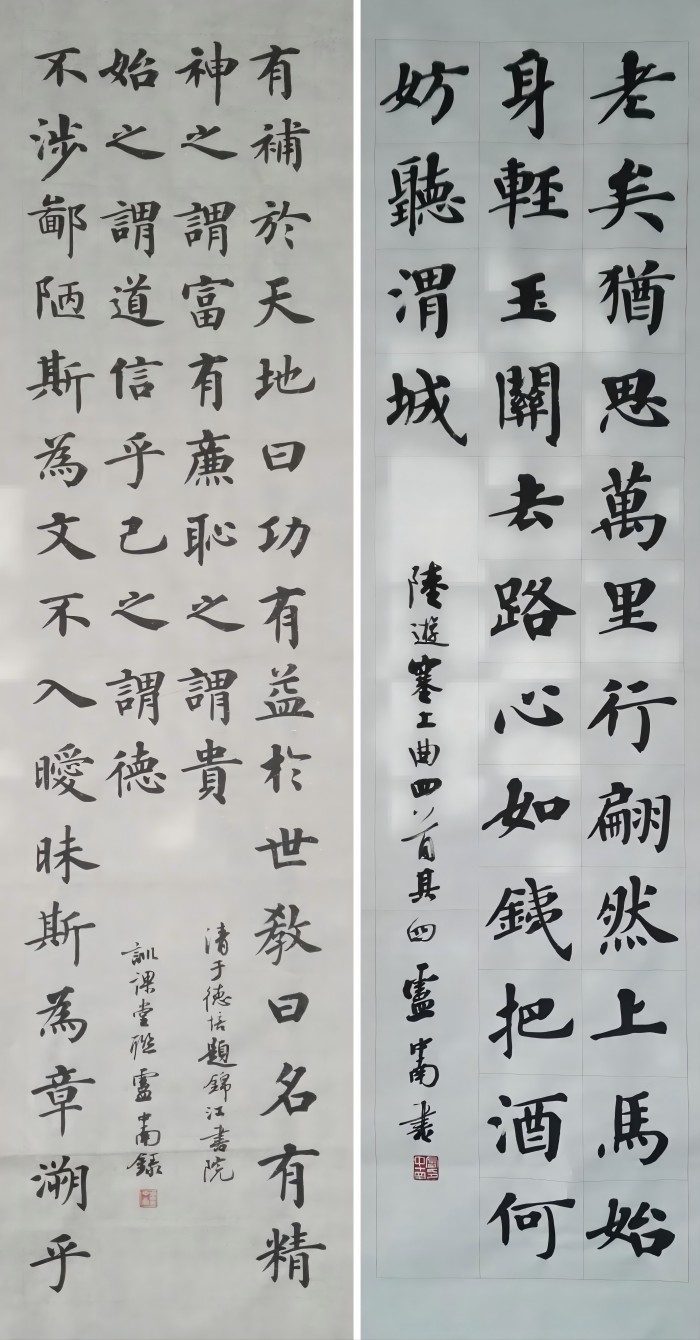 有補於天地曰功有益於世教曰名有精
神之謂富有廉恥之謂貴
清于德培題錦江書院
不涉鄙陋斯為文不入曖昧斯為章溯乎
始之謂道信乎己之謂德
訓課堂聯 盧中南錄
老矣猶思萬里行翩然上馬始
身輕玉關去路心如鐵把酒何
妨聽渭城
陸遊塞上曲四首其四 盧中南書